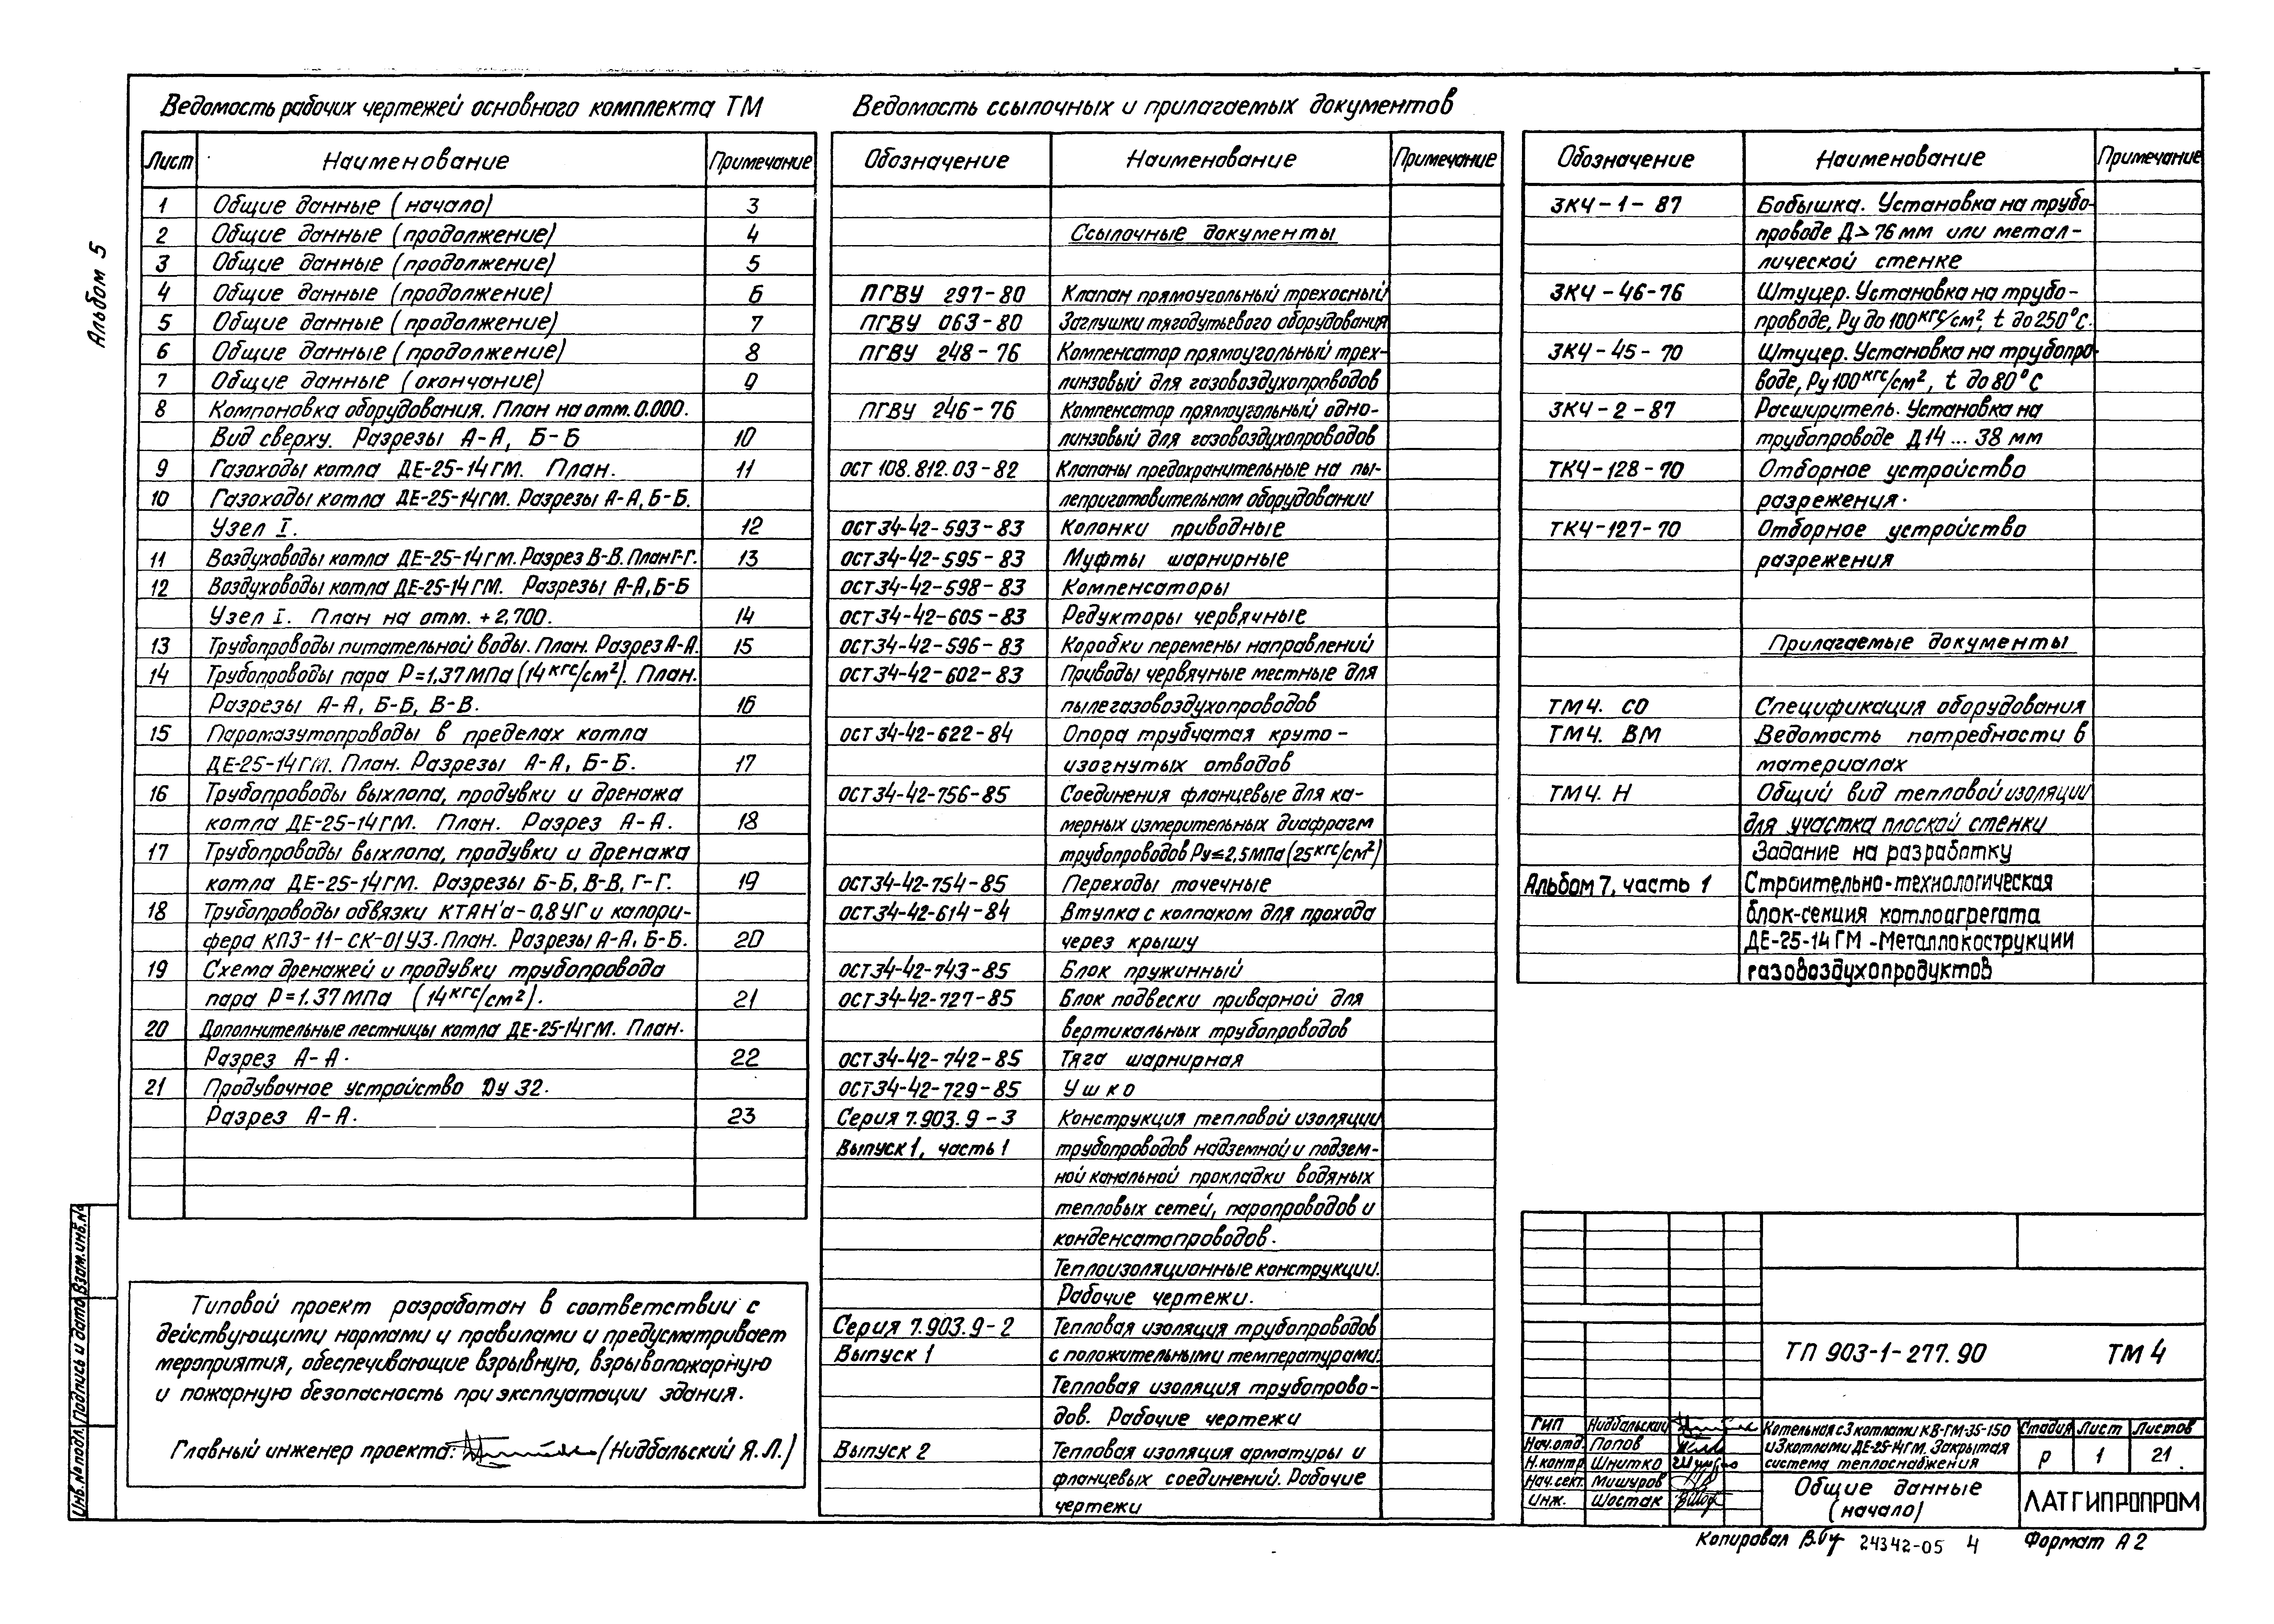 Альбом 5
Ведомость рабочих чертежей основного комплекта ТМ
Лист Наименование Примечание
1 Общие данные (начало) 3
2 Общие данные (продолжение) 4
3 Общие данные (продолжение) 5
4 Общие данные (продолжение) 6
5 Общие данные (продолжение) 7
6 Общие данные (продолжение) 8
7 Общие данные (окончание) 9
8 Компоновка оборудования. План на отм. 0.000.
Вид сверху. Разрезы А-А, Б-Б 10
9 Газоходы котла ДЕ-25-14ГМ. План. 11
10 Газоходы котла ДЕ-25-14ГМ. Разрезы А-А, Б-Б.
Узел I. 12
11 Воздуховоды котла ДЕ-25-14ГМ. Разрез В-В. План Г-Г. 13
12 Воздуховоды котла ДЕ-25-14ГМ. Разрезы А-А, Б-Б
Узел I. План на отм. +2,700. 14
13 Трубопроводы питательной воды. План. Разрез А-А. 15
14 Трубопроводы пара Р=1,37МПа (14кгс/см²). План.
Разрезы А-А, Б-Б, В-В. 16
15 Паромазутопроводы в пределах котла
ДЕ-25-14ГМ. План. Разрезы А-А, Б-Б. 17
16 Трубопроводы выхлопа, продувки и дренажа
котла ДЕ-25-14ГМ. План. Разрез А-А. 18
17 Трубопроводы выхлопа, продувки и дренажа
котла ДЕ-25-14ГМ. Разрезы Б-Б, В-В, Г-Г. 19
18 Трубопроводы обвязки КТАН'а-0,8УГ и калори-
фера КП3-11-СК-01У3. План. Разрезы А-А, Б-Б. 20
19 Схема дренажей и продувки трубопровода
пара Р=1.37МПа (14кгс/см²). 21
20 Дополнительные лестницы котла ДЕ-25-14ГМ. План.
Разрез А-А. 22
21 Продувочное устройство Ду 32.
Разрез А-А. 23
Типовой проект разработан в соответствии с
действующими нормами и правилами и предусматривает
мероприятия, обеспечивающие взрывную, взрывопожарную
и пожарную безопасность при эксплуатации здания.
Главный инженер проекта: (Нидбальский Я.Л.)
Ведомость ссылочных и прилагаемых документов
Обозначение Наименование Примечание
Ссылочные документы
ПГВУ 297-80 Клапан прямоугольный трехосный
ПГВУ 063-80 Заглушки тягодутьевого оборудования
ПГВУ 248-76 Компенсатор прямоугольный трех-
линзовый для газовоздухопроводов
ПГВУ 246-76 Компенсатор прямоугольный одно-
линзовый для газовоздухопроводов
ОСТ 108.812.03-82 Клапаны предохранительные на пы-
леприготовительном оборудовании
ОСТ 34-42-593-83 Колонки приводные
ОСТ 34-42-595-83 Муфты шарнирные
ОСТ 34-42-598-83 Компенсаторы
ОСТ 34-42-605-83 Редукторы червячные
ОСТ 34-42-596-83 Коробки перемены направлений
ОСТ 34-42-602-83 Приводы червячные местные для
пылегазовоздухопроводов
ОСТ 34-42-622-84 Опора трубчатая круто-
изогнутых отводов
ОСТ 34-42-756-85 Соединения фланцевые для ка-
мерных измерительных диафрагм
трубопроводов Ру≤2,5МПа (25кгс/см²)
ОСТ 34-42-754-85 Переходы точечные
ОСТ 34-42-614-84 Втулка с колпаком для прохода
через крышу
ОСТ 34-42-743-85 Блок пружинный
ОСТ 34-42-727-85 Блок подвески приварной для
вертикальных трубопроводов
ОСТ 34-42-742-85 Тяга шарнирная
ОСТ 34-42-729-85 Ушко
Серия 7.903.9-3 Конструкция тепловой изоляции
Выпуск 1, часть 1 трубопроводов надземной и подзем-
ной канальной прокладки водяных
тепловых сетей, паропроводов и
конденсатопроводов.
Теплоизоляционные конструкции.
Рабочие чертежи.
Серия 7.903.9-2 Тепловая изоляция трубопроводов
Выпуск 1 с положительными температурами.
Тепловая изоляция трубопрово-
дов. Рабочие чертежи
Выпуск 2 Тепловая изоляция арматуры и
фланцевых соединений. Рабочие
чертежи
Обозначение Наименование Примечание
ЗК4-1-87 Бобышка. Установка на трубо-
проводе Д>76мм или метал-
лической стенке
ЗК4-46-76 Штуцер. Установка на трубо-
проводе, Ру до 100кгс/см², t до 250°С.
ЗК4-45-70 Штуцер. Установка на трубопро-
воде, Ру 100кгс/см², t до 80°С
ЗК4-2-87 Расширитель. Установка на
трубопроводе Д14...38 мм
ТК4-128-70 Отборное устройство
разрежения.
ТК4-127-70 Отборное устройство
разрежения
Прилагаемые документы
ТМ4. СО Спецификация оборудования
ТМ4. ВМ Ведомость потребности в
материалах
ТМ4. Н Общий вид тепловой изоляции
для участка плоской стенки
Задание на разработку
Альбом 7, часть 1 Строительно-технологическая
блок-секция котлоагрегата
ДЕ-25-14ГМ-Металлокострукции
газовоздухопродуктов
ТП 903-1-277.90 ТМ4
ГИП Нидбальский
Нач.отд. Попов
Н.контр Шнитко
Нач.сект. Мишуров
Инж. Шостак
Котельная с 3 котлами КВ-ГМ-35-150
и 3 котлами ДЕ-25-14ГМ. Закрытая
система теплоснабжения
Стадия Лист Листов
Р 1 21.
Общие данные
(начало)
ЛАТГИПРОПРОМ
Копировал 24342-05 4 Формат А2
Инв.№ подл. Подпись и дата Взам.инв.№